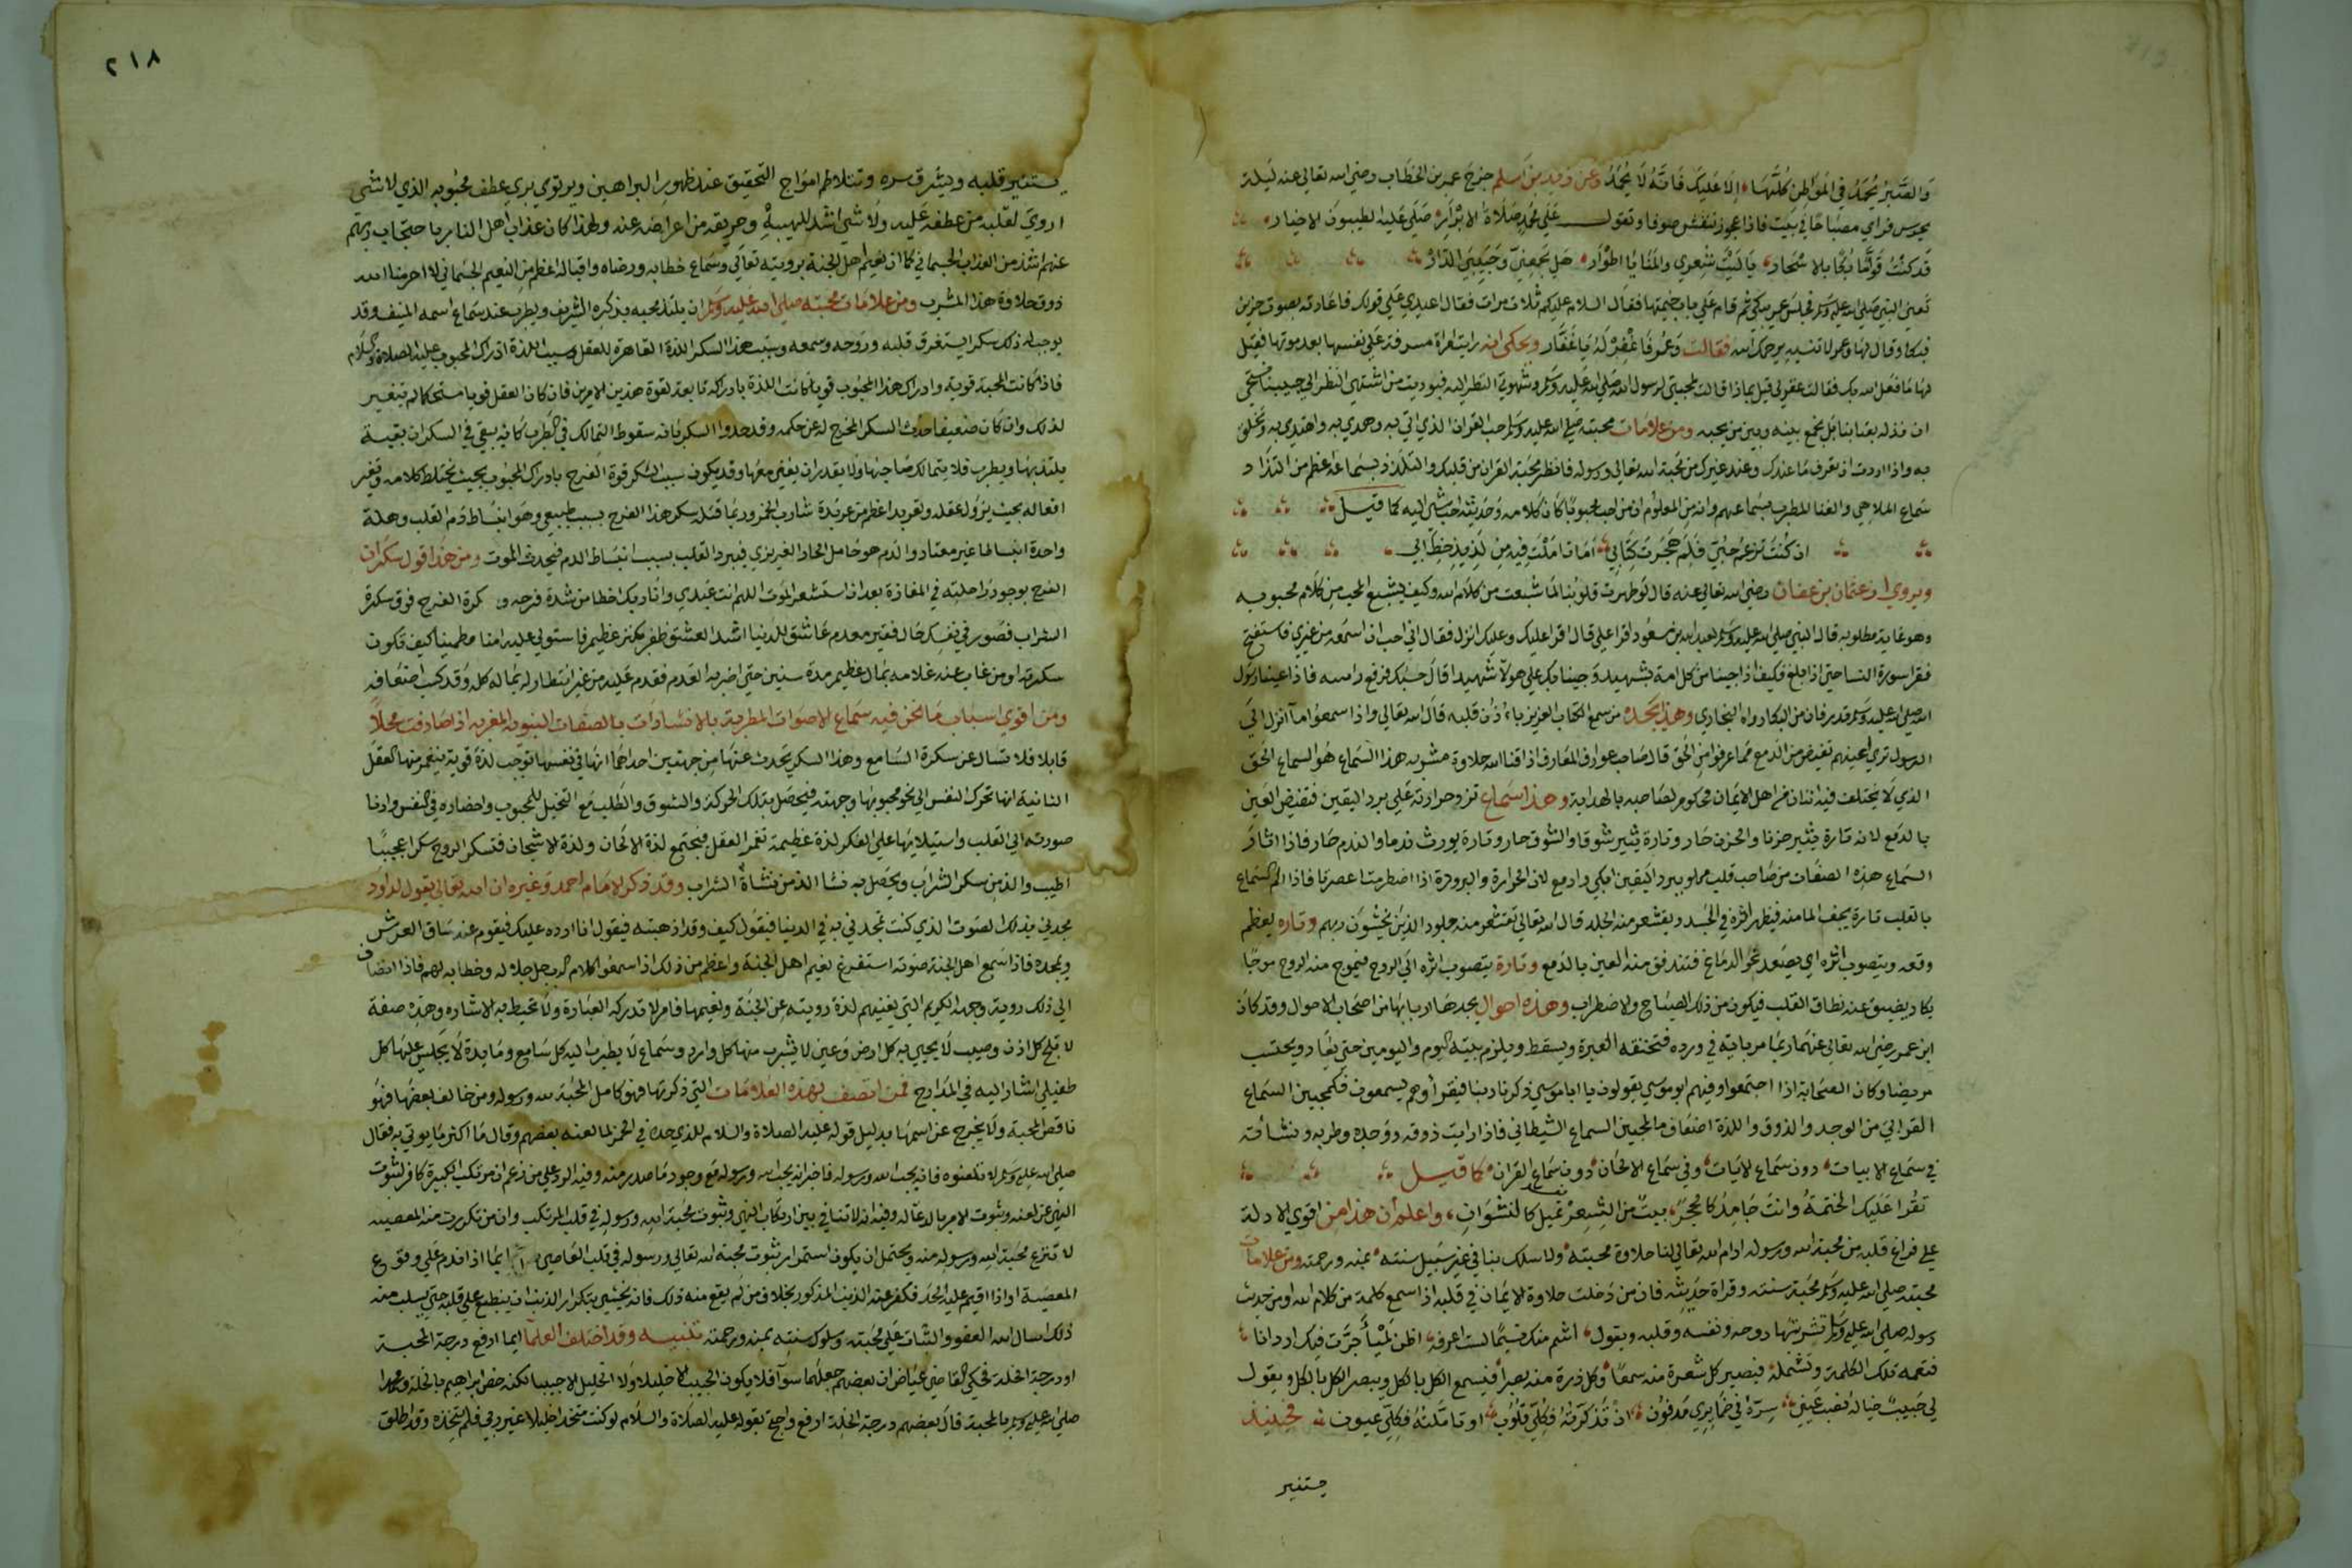 والصبر يحمد في المواطن كلها الا عليك فانه لا يحمد وعن زيد بن اسلم خرج عمر بن الخطاب رضي الله تعالى عنه ليلة
يحرس فراي مصباحا في بيت فاذا عجوز تنفش صوفا وتقول على محمد صلاة الابرار صلى عليه الطيبون الاخيار
قد كنت قواما بكا بالاسحار يا ليت شعري والمنايا اطوار هل يجمعني وحبيبي الدار
تعني النبي صلى الله عليه وسلم فجلس عمر يبكي ثم قام على باب خيمتها فقال السلام عليكم ثلاث مرات فقال اعيدي علي قولك فاعادته بصوت حزين
فبكا وقال لها وعمر لا تنسيه يرحمك الله فقالت وعمر فاغفر له يا غفار ويحكى انه رايت امراة مسرفة على نفسها بعد موتها فقيل
لها ما فعل الله بك فقالت غفر لي قيل بماذا قالت لمحبتي لرسول الله صلى الله عليه وسلم وشهوتي النظر اليه فنوديت من اشتهى النظر الى حبيبنا نستحي
ان نذله بعتابنا بل نجمع بينه وبين من يحبه ومن علامات محبته صلى الله عليه وسلم حب القران الذي اتى به وهدي به واهتدي به وتخلق
به واذا اردت ان تعرف ما عندك وعند غيرك من محبة الله تعالى ورسوله فانظر محبة القران من قلبك والتلذذ بسماعه اعظم من التذاذ
سماع الملاهي والغنا المطرب بسماعهم وانه من المعلوم ان من احب محبوبا كان كلامه وحديثه احب شي اليه كما قيل
ان كنت تزعم حبي فلم هجرت كتابي اما تاملت فيه من لذيذ خطابي
ويروي ان عثمان بن عفان رضي الله تعالى عنه قال لو طهرت قلوبنا لما شبعت من كلام الله وكيف يشبع المحب من كلام محبوبه
وهو غاية مطلوبه قال النبي صلى الله عليه وسلم لعبد الله بن مسعود اقرا علي قال اقرا عليك وعليك انزل فقال اني احب ان اسمعه من غيري فاستفتح
فقرا سورة النسا حتى اذا بلغ فكيف اذا جينا من كل امة بشهيد وجينا بك على هولا شهيدا قال حسبك فرفع راسه فاذا عينا رسول
الله صلى الله عليه وسلم تذرفان من البكا رواه البخاري وهذا يجده من سمع الكتاب العزيز باذان قلبه قال الله تعالى واذا سمعوا ما انزل الى
الرسول ترى اعينهم تفيض من الدمع مما عرفوا من الحق قال صاحب عوارف المعارف اذاقنا الله حلاوة مشربه هذا السماع هو السماع الحق
الذي لا يختلف فيه اثنان من اهل الايمان محكوم لصاحبه بالهداية وهذا سماع ترد حرارته على برد اليقين فتفيض العين
بالدمع لانه تارة يثير حزنا والحزن حار وتارة يثير شوقا والشوق حار وتارة يورث ندما والندم حار فاذا اثار
السماع هذه الصفات من صاحب قلب مملو ببرد اليقين ابكى وادمع لان الحرارة والبرودة اذا اضطرمتا عصرتا فاذا الم السماع
بالقلب تارة يخف المامه فيظهر اثره في الجسد ويقشعر منه الجلد قال الله تعالى تقشعر منه جلود الذين يخشون ربهم وتاره يعظم
وقعه ويتصوب اثره اي يصعد نحو الدماغ فتندفق منه العين بالدمع وتارة يتصوب اثره الى الروح فتموج منه الروح موجا
يكاد يضيق عنه نطاق القلب فيكون من ذلك الصياح والاضطراب وهذه احوال يجدها اربابها من اصحاب الاحوال وقد كان
ابن عمر رضي الله تعالى عنهما ربما مر باية في ورده فتخنقه العبرة ويسقط ويلزم بيته اليوم واليومين حتى يعاد ويحتسب
مريضا وكان الصحابة اذا اجتمعوا وفيهم ابو موسي يقولون يا ابا موسي ذكرنا ربنا فيقرا وهم يسمعون فلمحبين السماع
القراني من الوجد والذوق واللذة اضعاف ما لمحبين السماع الشيطاني فاذا رايت ذوقه ووجده وطربه ونشاته
في سماع الابيات دون سماع الايات وفي سماع الالحان دون سماع القران كما قيل
تقرا عليك الختمة وانت جامد كالحجر بيت من الشعر تميل كالنشوان، واعلم ان هذا من اقوي الادلة
على فراغ قلبه من محبة الله ورسوله ادام الله تعالى لنا حلاوة محبته ولا سلك بنا في غير سبيل سنته بمنه ورحمته ومن علامات
محبته صلى الله عليه وسلم محبة سنته وقراة حديثه فان من دخلت حلاوة الايمان في قلبه اذا سمع كلمة من كلام الله او من حديث
رسوله صلى الله عليه وسلم تشربتها روحه ونفسه وقلبه ويقول اشم منك نسيما لست اعرفه اظن لمياء جرت فيك اردانا
فتعمه تلك الكلمة وتشمله فيصير كل شعرة منه سمعا وكل ذرة منه بصرا فيسمع الكل بالكل ويبصر الكل بالكل ويقول
لي حبيب خياله نصب عيني سره في ضمايري مدفون ان تذكرته فكلي قلوب او تاملته فكلي عيون فحينئذ
يستنير
٢١٨
يستنير قلبه ويشرق سره وتتلاطم امواج التحقيق عند ظهور البراهين ويرتوي بري عطف محبوبه الذي لا شي
اروي لقلبه من عطفه عليه ولا شي اشد للهيبه وحريقه من اعراضه عنه ولهذا كان عذاب اهل النار باحتجاب ربهم
عنهم اشد من العذاب الجسماني كما ان نعيم اهل الجنة برويته تعالى وسماع خطابه ورضاه واقباله اعظم من النعيم الجسماني لا احرمنا الله
ذوق حلاوة هذا المشرب ومن علامات محبته صلى الله عليه وسلم ان يلتذ محبه بذكره الشريف ويطرب عند سماع اسمه المنيف وقد
يوجب له ذلك سكرا يستغرق قلبه وروحه وسمعه وسبب هذا السكر اللذة القاهرة للعقل وسبب اللذة ادراك المحبوب عليه الصلاة والسلام
فاذا كانت المحبة قوية وادراك هذا المحبوب قويا كانت اللذة بادراكه تابعة لقوة هذين الامرين فان كان العقل قويا مستحكما لم يتغير
لذلك وان كان ضعيفا حدث السكر المخرج له عن حكمه وقد حدوا السكر بانه سقوط التمالك في الطرب كانه يبقي في السكران بقية
يلتذ بها ويطرب فلا يتمالك صاحبها ولا يقدر ان يفنى معها وقد يكون سبب السكر قوة الفرح بادراك المحبوب بحيث يختلط كلامه وتغير
افعاله بحيث يزول عقله ويعربد اعظم من عربدة شارب الخمر وربما قتله سكر هذا الفرح بسبب طبيعي وهو انبساط دم القلب وهلة
واحدة انبساطا غير معتاد والدم هو حامل الحار الغريزي فيبرد القلب بسبب انبساط الدم فيحدث الموت ومن هذا قول سكران
الفرح بوجود راحلته في المفازة بعد ان استشعر الموت اللهم انت عبدي وانا ربك اخطا من شدة فرحه و سكرة الفرح فوق سكرة
الشراب فصور في نفسك حال فقير معدم عاشق للدنيا اشد العشق ظفر بكنز عظيم فاستولي عليه امنا مطمينا كيف تكون
سكرته او من غاب عنه غلامه بمال عظيم مدة سنين حتى اضر به العدم فقدم عليه من غير انتظار له بماله كله وقد كسب اضعافه
ومن اقوي اسباب ما نحن فيه سماع الاصوات المطربة بالانشادات بالصفات النبوية المغربه اذا صادفت محلا
قابلا فلا تسال عن سكرة السامع وهذا السكر يحدث عنها من جهتين احداهما انها في نفسها توجب لذة قوية ينغمر منها العقل
الثانية انها تحرك النفس الى نحو محبوبها وجهته فيحصل بتلك الحركة والشوق والطلب مع التخيل للمحبوب واحضاره في النفس وادنا
صورته الى القلب واستيلايها على الفكر لذة عظيمة تغمر العقل فيجتمع لذة الالحان ولذة الاشجان فتسكر الروح سكرا عجيبا
اطيب والذ من سكر الشراب ويحصل به نشا الذ من نشاة الشراب وقد ذكر الامام احمد وغيره ان الله تعالى يقول لداود
مجدني بذلك الصوت الذي كنت تمجدني به في الدنيا فيقول كيف وقد اذهبته فيقول انا ارده عليك فيقوم عند ساق العرش
ويمجده فاذا سمع اهل الجنة صوته استفرغ نعيم اهل الجنة واعظم من ذلك اذا سمعوا كلام الرب جل جلاله وخطابه لهم فاذا انضاف
الى ذلك روية وجهه الكريم التي يغنيهم لذة رويته عن الجنة ونعيمها فامر لا تدركه العبارة ولا تحيط به الاشاره وهذه صفة
لا تلج كل اذن وصيب لا يحيي به كل ارض وعين لا يشرب منها كل وارد وسماع لا يطرب اليه كل سامع ومايدة لا يجلس عليها كل
طفيلي اشار اليه في المدارج فمن اتصف بهذه العلامات التي ذكرتها فهو كامل المحبة لله ورسوله ومن خالف بعضها فهو
ناقص المحبة ولا يخرج عن اسمها بدليل قوله عليه الصلاة والسلام للذي حده في الخمر لما لعنه بعضهم وقال ما اكثر ما يوتي به فقال
صلى الله عليه وسلم لا تلعنوه فانه يحب الله ورسوله فاخبر انه يحب الله ورسوله مع وجود ما صدر منه وفيه الرد على من زعم ان مرتكب الكبيرة كافر لثبوت
النهي عن لعنه وثبوت الامر بالدعا له وفيه انه لا تنافي بين ارتكاب النهي وثبوت محبة الله ورسوله في قلب المرتكب وان من تكررت منه المعصية
لا تنزع محبة الله ورسوله منه ويحتمل ان يكون استمرار ثبوت محبة الله تعالى ورسوله في قلب العاصي ايما اذا ندم على وقوع
المعصية او اذا اقيم عليه الحد فكفر عنه الذنب المذكور بخلاف من لم يقع منه ذلك فانه يخشى بتكرار الذنب ان ينطبع على قلبه حتى يسلب منه
ذلك اسال الله العفو والثبات على محبته وسلوك سنته بمنه ورحمته تنبيه وقد اختلف العلما ايما ارفع درجة المحبة
او درجة الخلة فحكى القاضي عياض ان بعضهم جعلهما سوآ فلا يكون الحبيب الا خليلا ولا الخليل الا حبيبا لكنه خص ابراهيم بالخلة ومحمدا
صلى الله عليه وسلم بالمحبة قال بعضهم درجة الخلة ارفع واحتج بقوله عليه الصلاة والسلام لو كنت متخذا خليلا غير ربي فلم يتخذه وقد اطلق